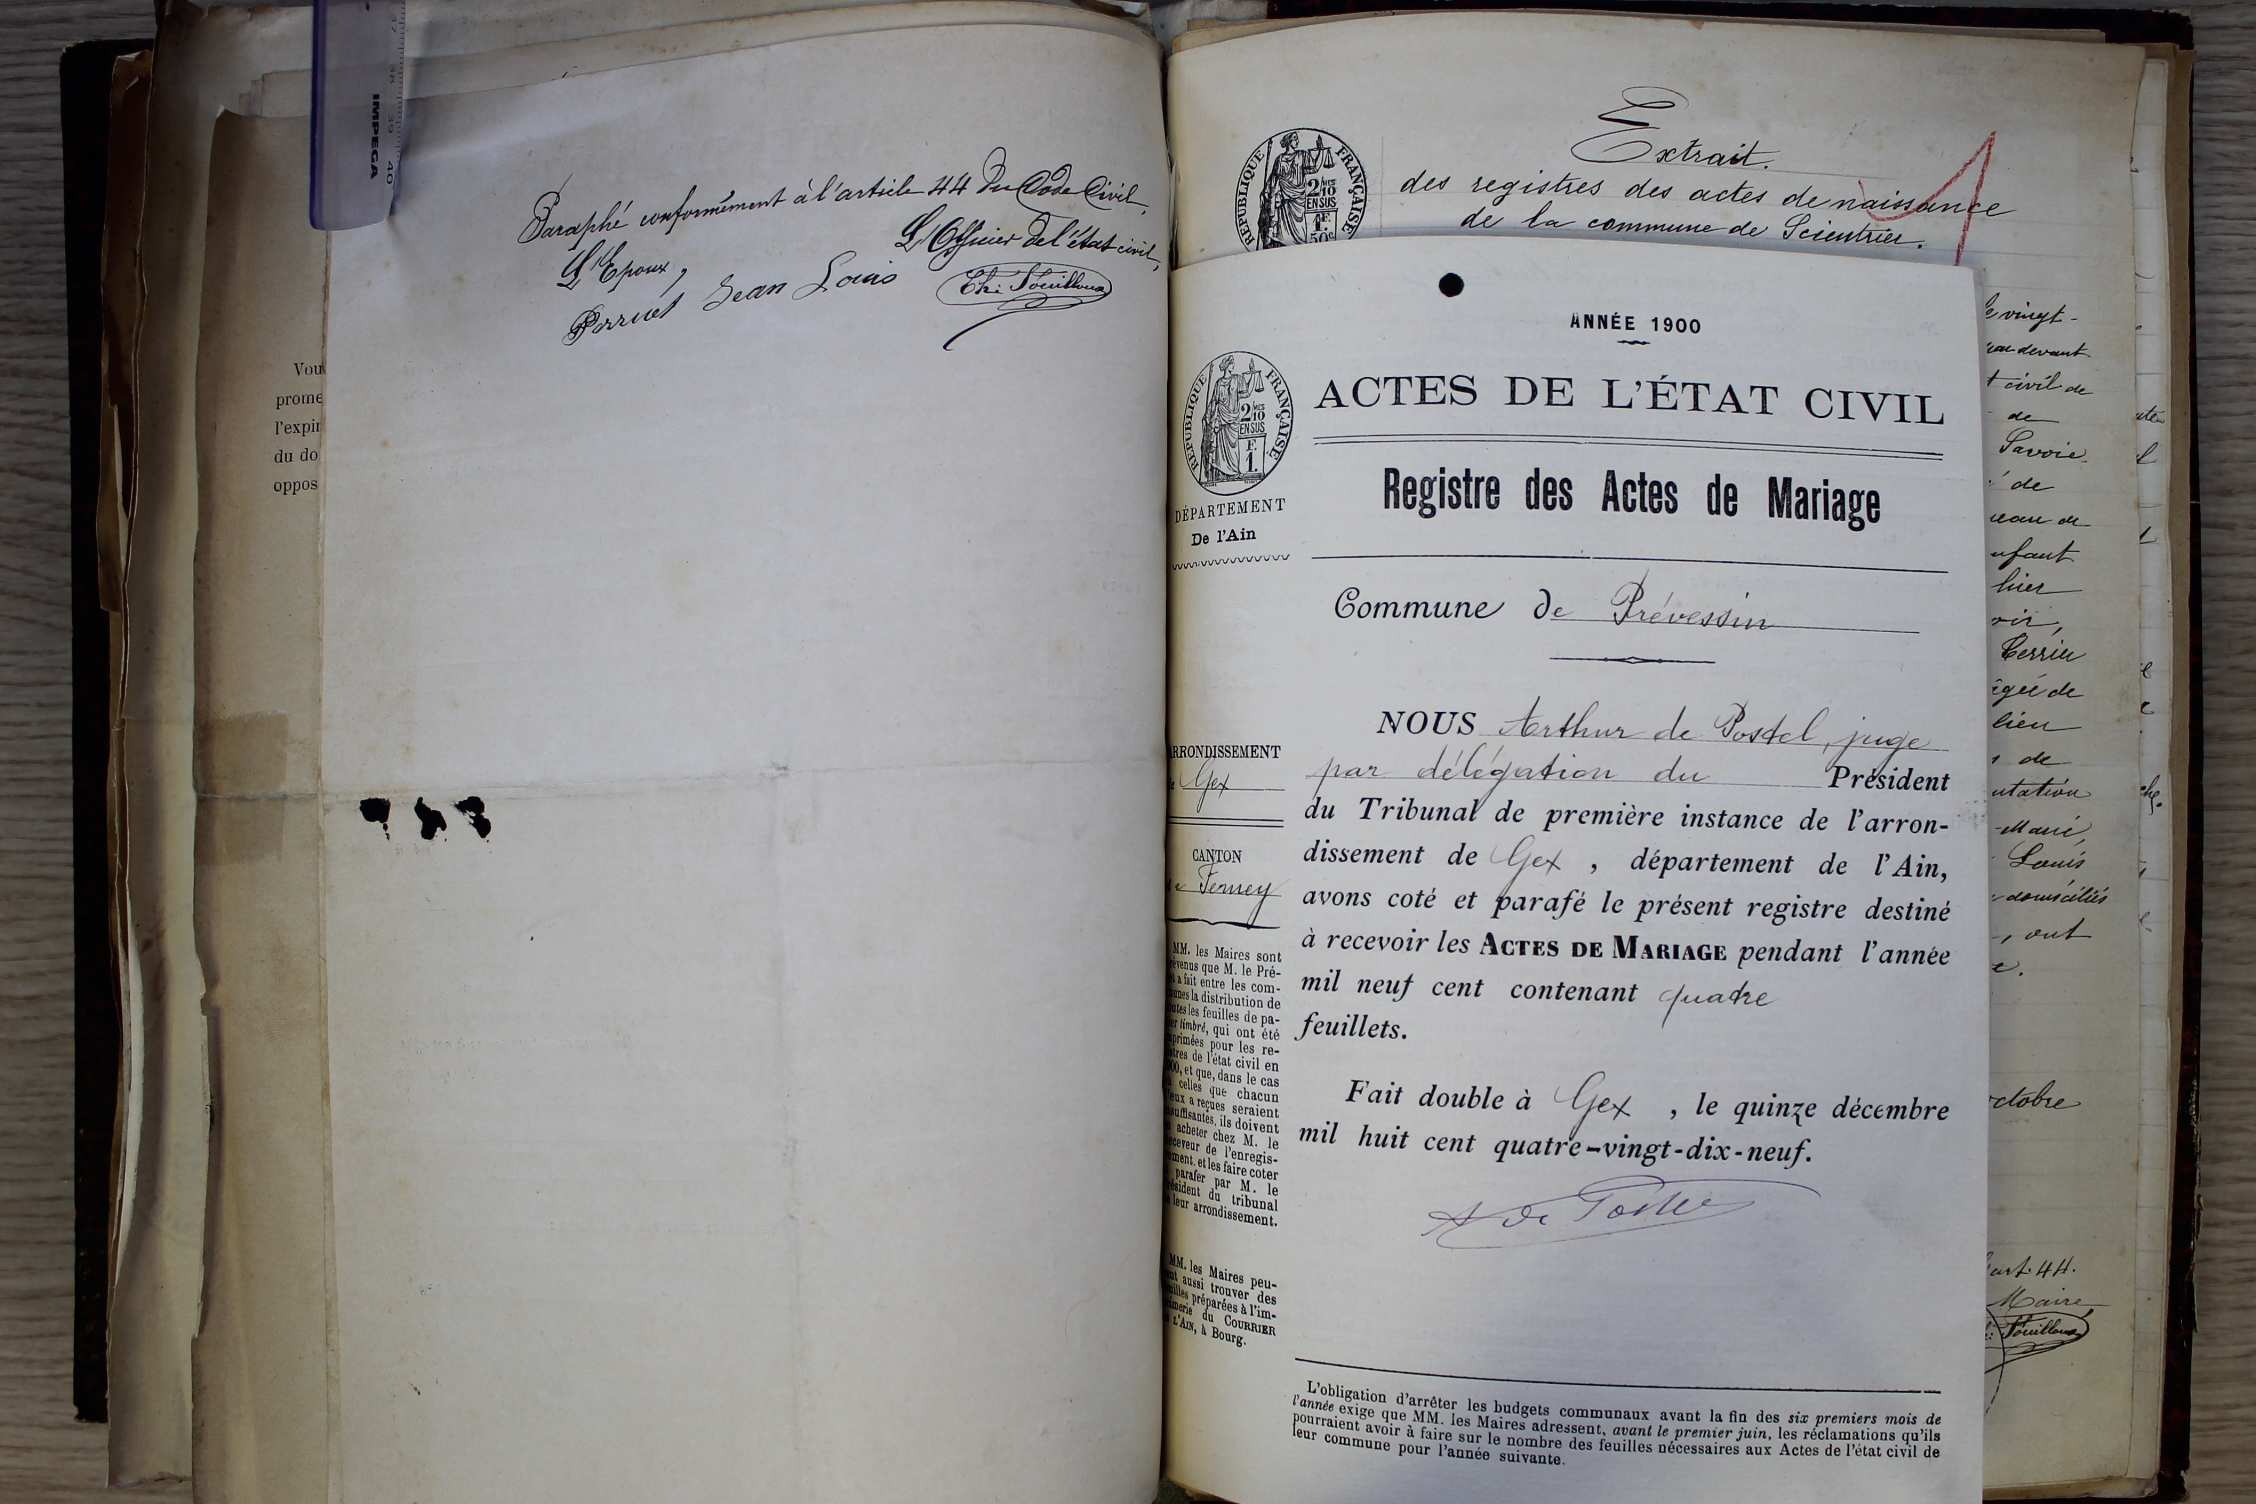 37 38 39 40
IMPEGA
Vou
prome
l'expir
du do
oppos
Paraphé conformément à l'article 44 du Code Civil,
L'Officier de l'état civil,
L'Epoux,
Perruet Jean Louis
Extrait
des registres des actes de naissance
de la commune de Scientrier.
RÉPUBLIQUE FRANÇAISE
2/10 MES
EN SUS
1F.
50c
e vingt-
par devant
t civil de
de
Savoie
de
eau de
nfant
hier
oir,
Perrier
agée de
lieu
de
utation
Marie,
Louis
domiciliés
, ont
e.
octobre
art. 44.
Maire,
ANNÉE 1900
RÉPUBLIQUE FRANÇAISE
2/10 MES
EN SUS
F.
1.
ACTES DE L'ÉTAT CIVIL
DÉPARTEMENT
De l'Ain
Registre des Actes de Mariage
Commune de Prévessin
ARRONDISSEMENT
de Gex
CANTON
de Ferney
MM. les Maires sont
prévenus que M. le Pré-
fet a fait entre les com-
munes la distribution de
toutes les feuilles de pa-
pier timbré, qui ont été
imprimées pour les re-
gistres de l'état civil en
1900, et que, dans le cas
où celles que chacun
d'eux a reçues seraient
insuffisantes, ils doivent
en acheter chez M. le
receveur de l'enregis-
trement, et les faire coter
et parafer par M. le
président du tribunal
de leur arrondissement.
MM. les Maires peu-
vent aussi trouver des
feuilles préparées à l'im-
primerie du COURRIER
DE L'AIN, à Bourg.
NOUS Arthur de Postel, juge
par délégation du Président
du Tribunal de première instance de l'arron-
dissement de Gex, département de l'Ain,
avons coté et parafé le présent registre destiné
à recevoir les ACTES DE MARIAGE pendant l'année
mil neuf cent contenant quatre
feuillets.
Fait double à Gex, le quinze décembre
mil huit cent quatre-vingt-dix-neuf.
A de Postel
L'obligation d'arrêter les budgets communaux avant la fin des six premiers mois de
l'année exige que MM. les Maires adressent, avant le premier juin, les réclamations qu'ils
pourraient avoir à faire sur le nombre des feuilles nécessaires aux Actes de l'état civil de
leur commune pour l'année suivante.